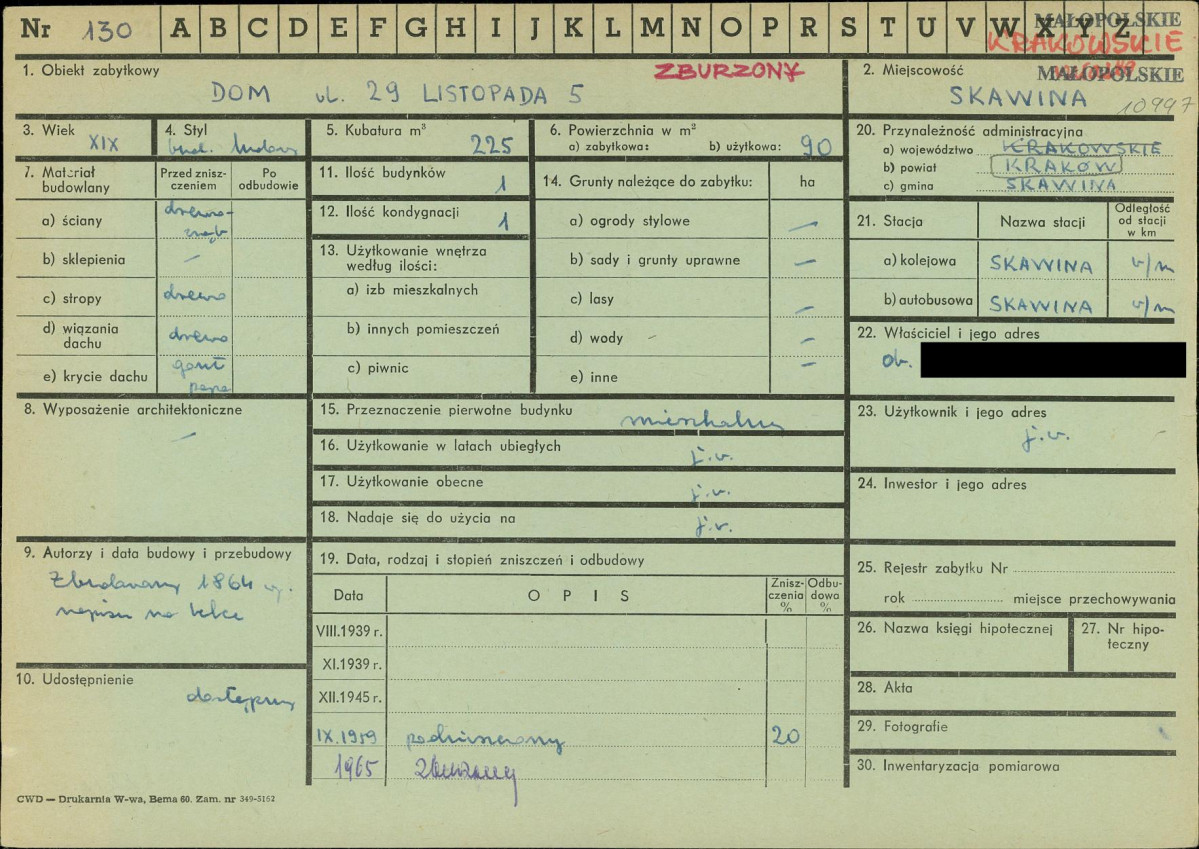 Nr 130 A B C D E F G H I J K L M N O P R S T U V W X Y Z
MAŁOPOLSKIE
KRAKOWSKIE
MAŁOPOLSKIE
1. Obiekt zabytkowy
ZBURZONY
DOM ul. 29 LISTOPADA 5
2. Miejscowość
SKAWINA
10997
3. Wiek
XIX
4. Styl
bud. ludowy
5. Kubatura m³
225
6. Powierzchnia w m²
a) zabytkowa: b) użytkowa: 90
7. Materiał budowlany
Przed zniszczeniem
Po odbudowie
a) ściany drewno-
zrąb
b) sklepienia —
c) stropy drewno
d) wiązania dachu drewno
e) krycie dachu gont
papa
8. Wyposażenie architektoniczne
—
9. Autorzy i data budowy i przebudowy
Zbudowany 1864 wg.
napisu na belce
10. Udostępnienie
dostępny
11. Ilość budynków
1
12. Ilość kondygnacji
1
13. Użytkowanie wnętrza
według ilości:
a) izb mieszkalnych
b) innych pomieszczeń
c) piwnic
14. Grunty należące do zabytku: ha
a) ogrody stylowe —
b) sady i grunty uprawne —
c) lasy —
d) wody —
e) inne —
15. Przeznaczenie pierwotne budynku
mieszkalny
16. Użytkowanie w latach ubiegłych
j.w.
17. Użytkowanie obecne
j.w.
18. Nadaje się do użycia na
j.w.
19. Data, rodzaj i stopień zniszczeń i odbudowy
Data
O P I S
Zniszczenia %
Odbudowa %
VIII.1939 r.
XI.1939 r.
XII.1945 r.
IX.1959 podniszczony 20
1965 zburzony
20. Przynależność administracyjna
a) województwo KRAKOWSKIE
b) powiat KRAKÓW
c) gmina SKAWINA
21. Stacja
Nazwa stacji
Odległość
od stacji
w km
a) kolejowa SKAWINA w/m
b) autobusowa SKAWINA w/m
22. Właściciel i jego adres
ob.
23. Użytkownik i jego adres
j.w.
24. Inwestor i jego adres
25. Rejestr zabytku Nr
rok miejsce przechowywania
26. Nazwa księgi hipotecznej
27. Nr hipoteczny
28. Akta
29. Fotografie
30. Inwentaryzacja pomiarowa
CWD — Drukarnia W-wa, Bema 60. Zam. nr 349-5162